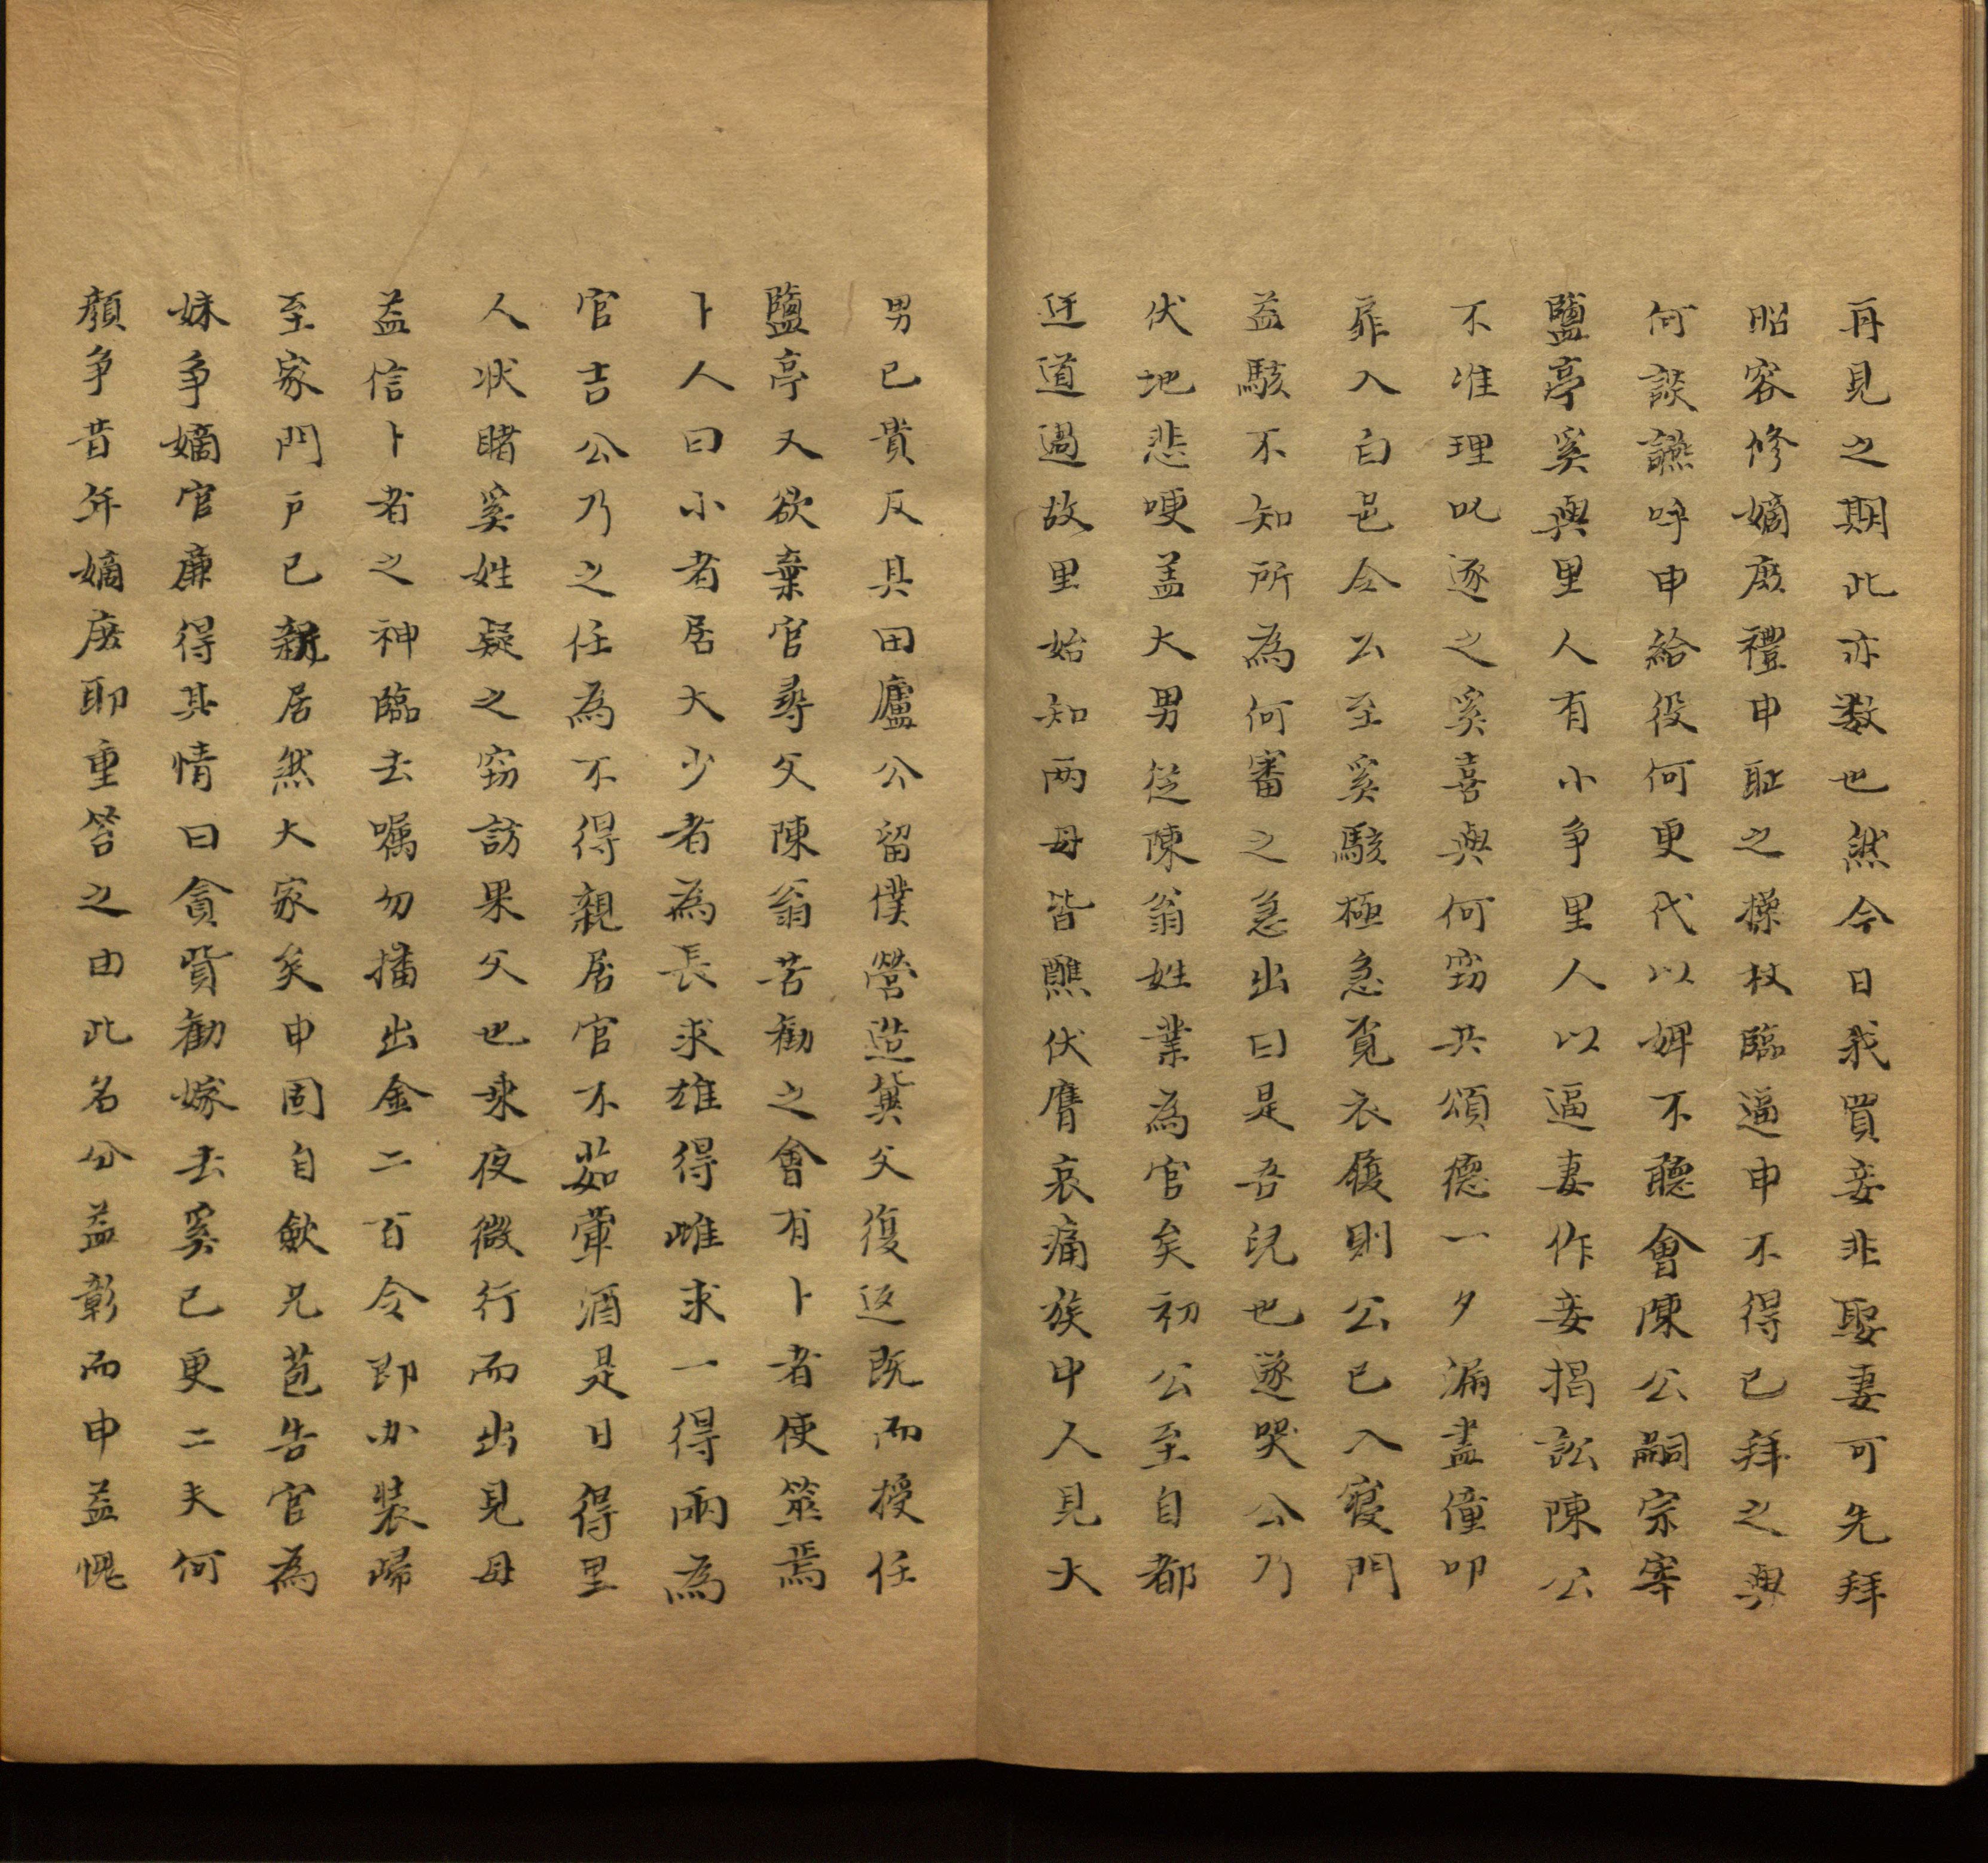 再見之期此亦数也然今日我買妾非娶妻可先拜
昭容修嫡庶禮申恥之操杖臨逼申不得已拜之與
何談讌呼申給役何更代以婢不聽會陳公嗣宗宰
鹽亭奚與里人有小争里人以逼妻作妾揭訟陳公
不准理叱逐之奚喜與何窃共頌德一夕漏盡僮叩
扉入白邑令公至奚駭極急覓衣履則公已入寝門
益駭不知所為何審之急出曰是吾兒也遂哭公乃
伏地悲哽盖大男從陳翁姓業為官矣初公至自都
迂道過故里始知两母皆醮伏膺哀痛族中人見大
男已貴反其田廬公留僕營造冀父復返既而授任
鹽亭又欲棄官尋父陳翁苦勸之會有卜者使筮焉
卜人曰小者居大少者為長求雄得雌求一得兩為
官吉公乃之任為不得親居官不茹葷酒是日得里
人状睹奚姓疑之窃訪果父也乘夜微行而出見母
益信卜者之神臨去嘱勿播出金二百令即办装歸
至家門户已新居然大家矣申固自歛兄苞告官為
妹争嫡官廉得其情曰貪貲勸嫁去奚已更二夫何
顏争昔年嫡庶耶重笞之由此名分益彰而申益愧